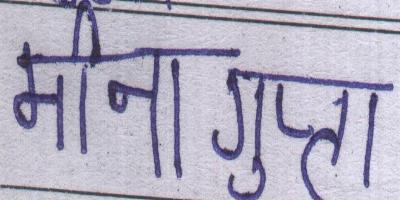 मीना गुप्ता